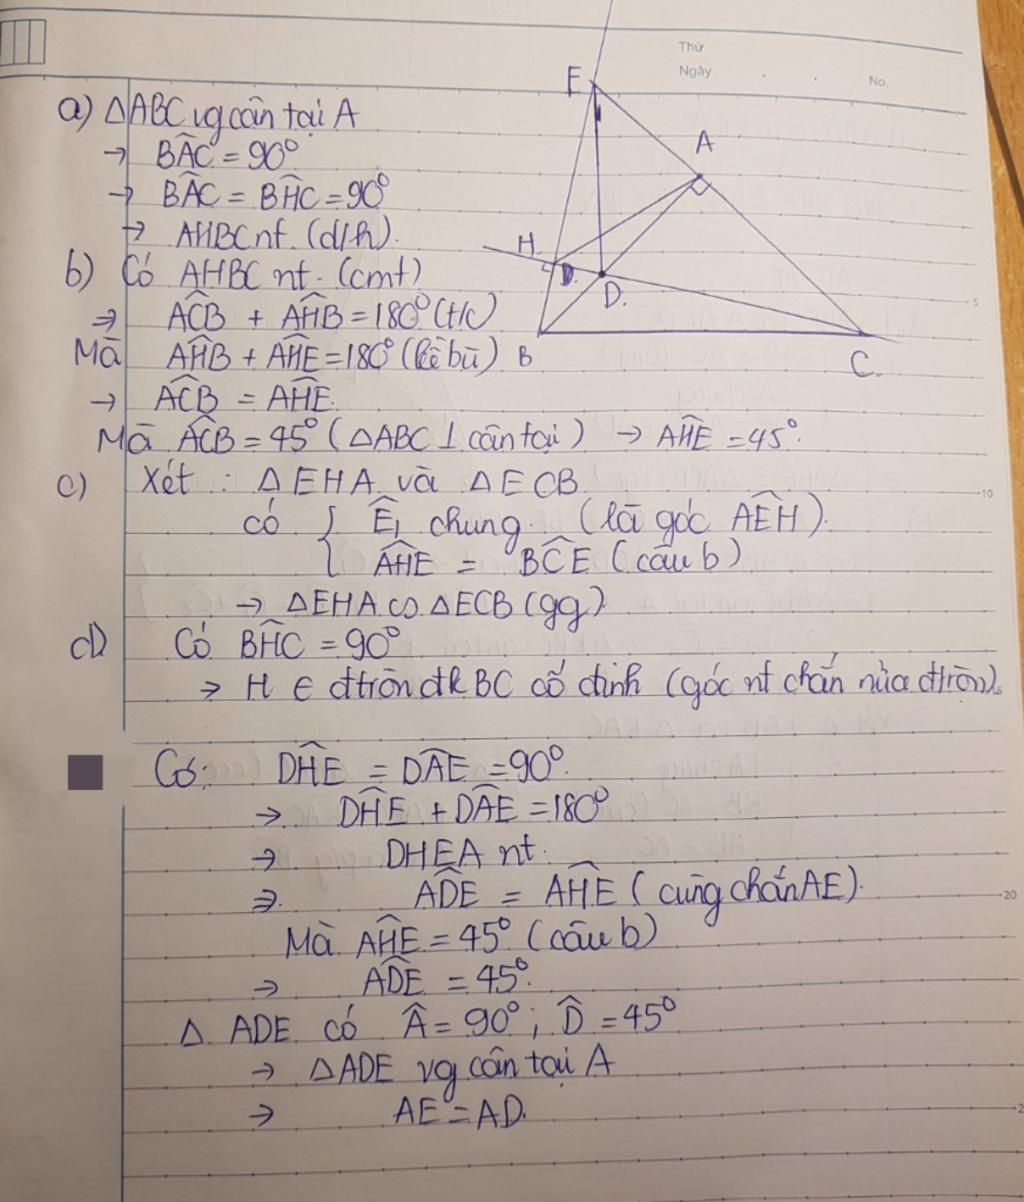 Thứ
Ngày
No.
E
A
H
D.
D.
B
C.
a) △ABC vg cân tại A
→ BÂC = 90°
→ BÂC = BĤC = 90°
→ AHBC nt (d/h).
b) Có AHBC nt. (cmt)
⇒ AĈB + AĤB = 180° (t/c)
Mà AĤB + AĤE = 180° (kề bù)
→ AĈB = AĤE.
Mà AĈB = 45° (△ABC ⊥ cân tại) → AĤE = 45°.
c) Xét : △EHA và △ECB
có { Ê₁ chung (là góc AÊH).
AĤE = BĈE (câu b)
→ △EHA ∽ △ECB (gg)
d) Có BĤC = 90°
→ H ∈ đtròn đk BC cố định (góc nt chắn nửa đtròn).
Có: DĤE = DÂE = 90°.
→ DĤE + DÂE = 180°
→ DHEA nt.
⇒. AD̂E = AĤE (cùng chắn AE).
Mà AĤE = 45° (câu b)
→ AD̂E = 45°.
△ ADE có Â = 90° ; D̂ = 45°
→ △ADE vg cân tại A
→ AE = AD.
5
10
20
2